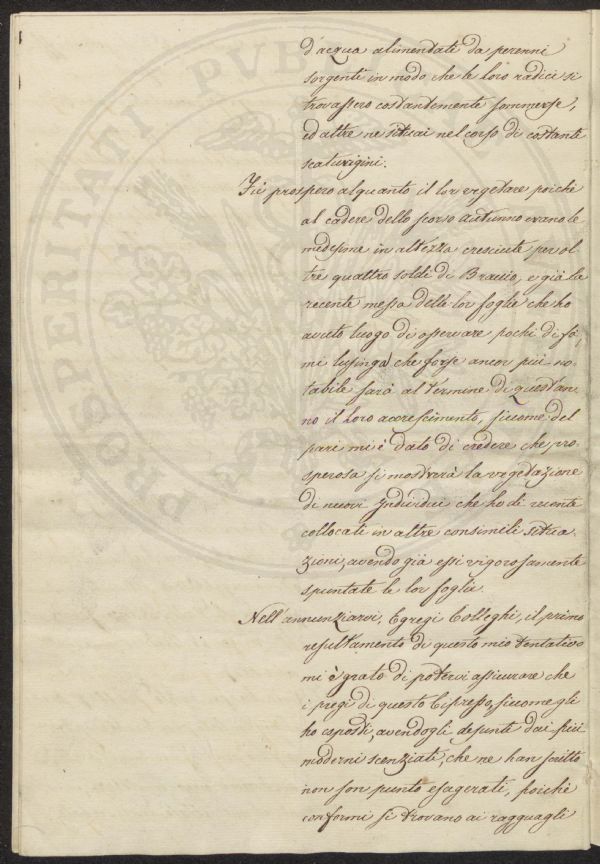 d'acqua alimentati da perenni
sorgenti in modo che le loro radici si
trovassero costantemente sommerse,
ed altre ne situai nel corso di costante
scaturigini.
Fu prospero alquanto il lor vegetare poichè
al cadere dello scorso Autunno erano le
medesime in altezza cresciute per ol-
tre quattro soldi di Braccio, e già la
recente messa delle lor foglie che ho
avuto luogo di osservare pochi dì fà,
mi lusinga che forse ancor più no-
tabile sarà al termine di quest'an-
no il loro accrescimento, siccome del
pari mi è dato di credere che pro-
sperosa si mostrerà la vegetazione
di nuovi Individui che ho di recente
collocati in altre consimili situa-
zioni, avendo già essi vigorosamente
spuntate le lor foglie.
Nell'annunziarvi, Egregi Colleghi, il primo
resultamento di questo mio tentativo
mi è grato di potervi assicurare che
i pregi di questo Cipresso, siccome gli
ho esposti, avendogli desunti dai più
moderni scenziati, che ne han scritto
non son punto esagerati, poichè
conformi si trovano ai ragguagli
PROSPERITATI PVBL